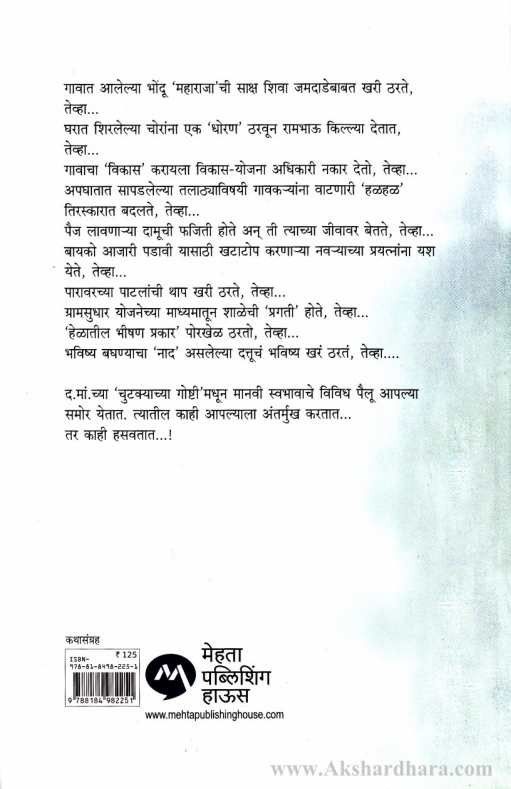 गावात आलेल्या भोंदू 'महाराजा'ची साक्ष शिवा जमदाडेबाबत खरी ठरते,
तेव्हा...
घरात शिरलेल्या चोरांना एक 'धोरण' ठरवून रामभाऊ किल्ल्या देतात,
तेव्हा...
गावाचा 'विकास' करायला विकास-योजना अधिकारी नकार देतो, तेव्हा...
अपघातात सापडलेल्या तलाठ्याविषयी गावकऱ्यांना वाटणारी 'हळहळ'
तिरस्कारात बदलते, तेव्हा...
पैज लावणाऱ्या दामूची फजिती होते अन् ती त्याच्या जीवावर बेतते, तेव्हा...
बायको आजारी पडावी यासाठी खटाटोप करणाऱ्या नवऱ्याच्या प्रयत्नांना यश
येते, तेव्हा...
पारावरच्या पाटलांची थाप खरी ठरते, तेव्हा...
ग्रामसुधार योजनेच्या माध्यमातून शाळेची 'प्रगती' होते, तेव्हा...
'हेळातील भीषण प्रकार' पोरखेळ ठरतो, तेव्हा...
भविष्य बघण्याचा 'नाद' असलेल्या दत्तूचं भविष्य खरं ठरतं, तेव्हा....
द.मां.च्या 'चुटक्याच्या गोष्टी'मधून मानवी स्वभावाचे विविध पैलू आपल्या
समोर येतात. त्यातील काही आपल्याला अंतर्मुख करतात...
तर काही हसवतात...!
कथासंग्रह
₹ 125
ISBN-
978-81-8498-225-1
9 788184 982251
मेहता
पब्लिशिंग
हाऊस
www.mehtapublishinghouse.com
www.Akshardhara.com